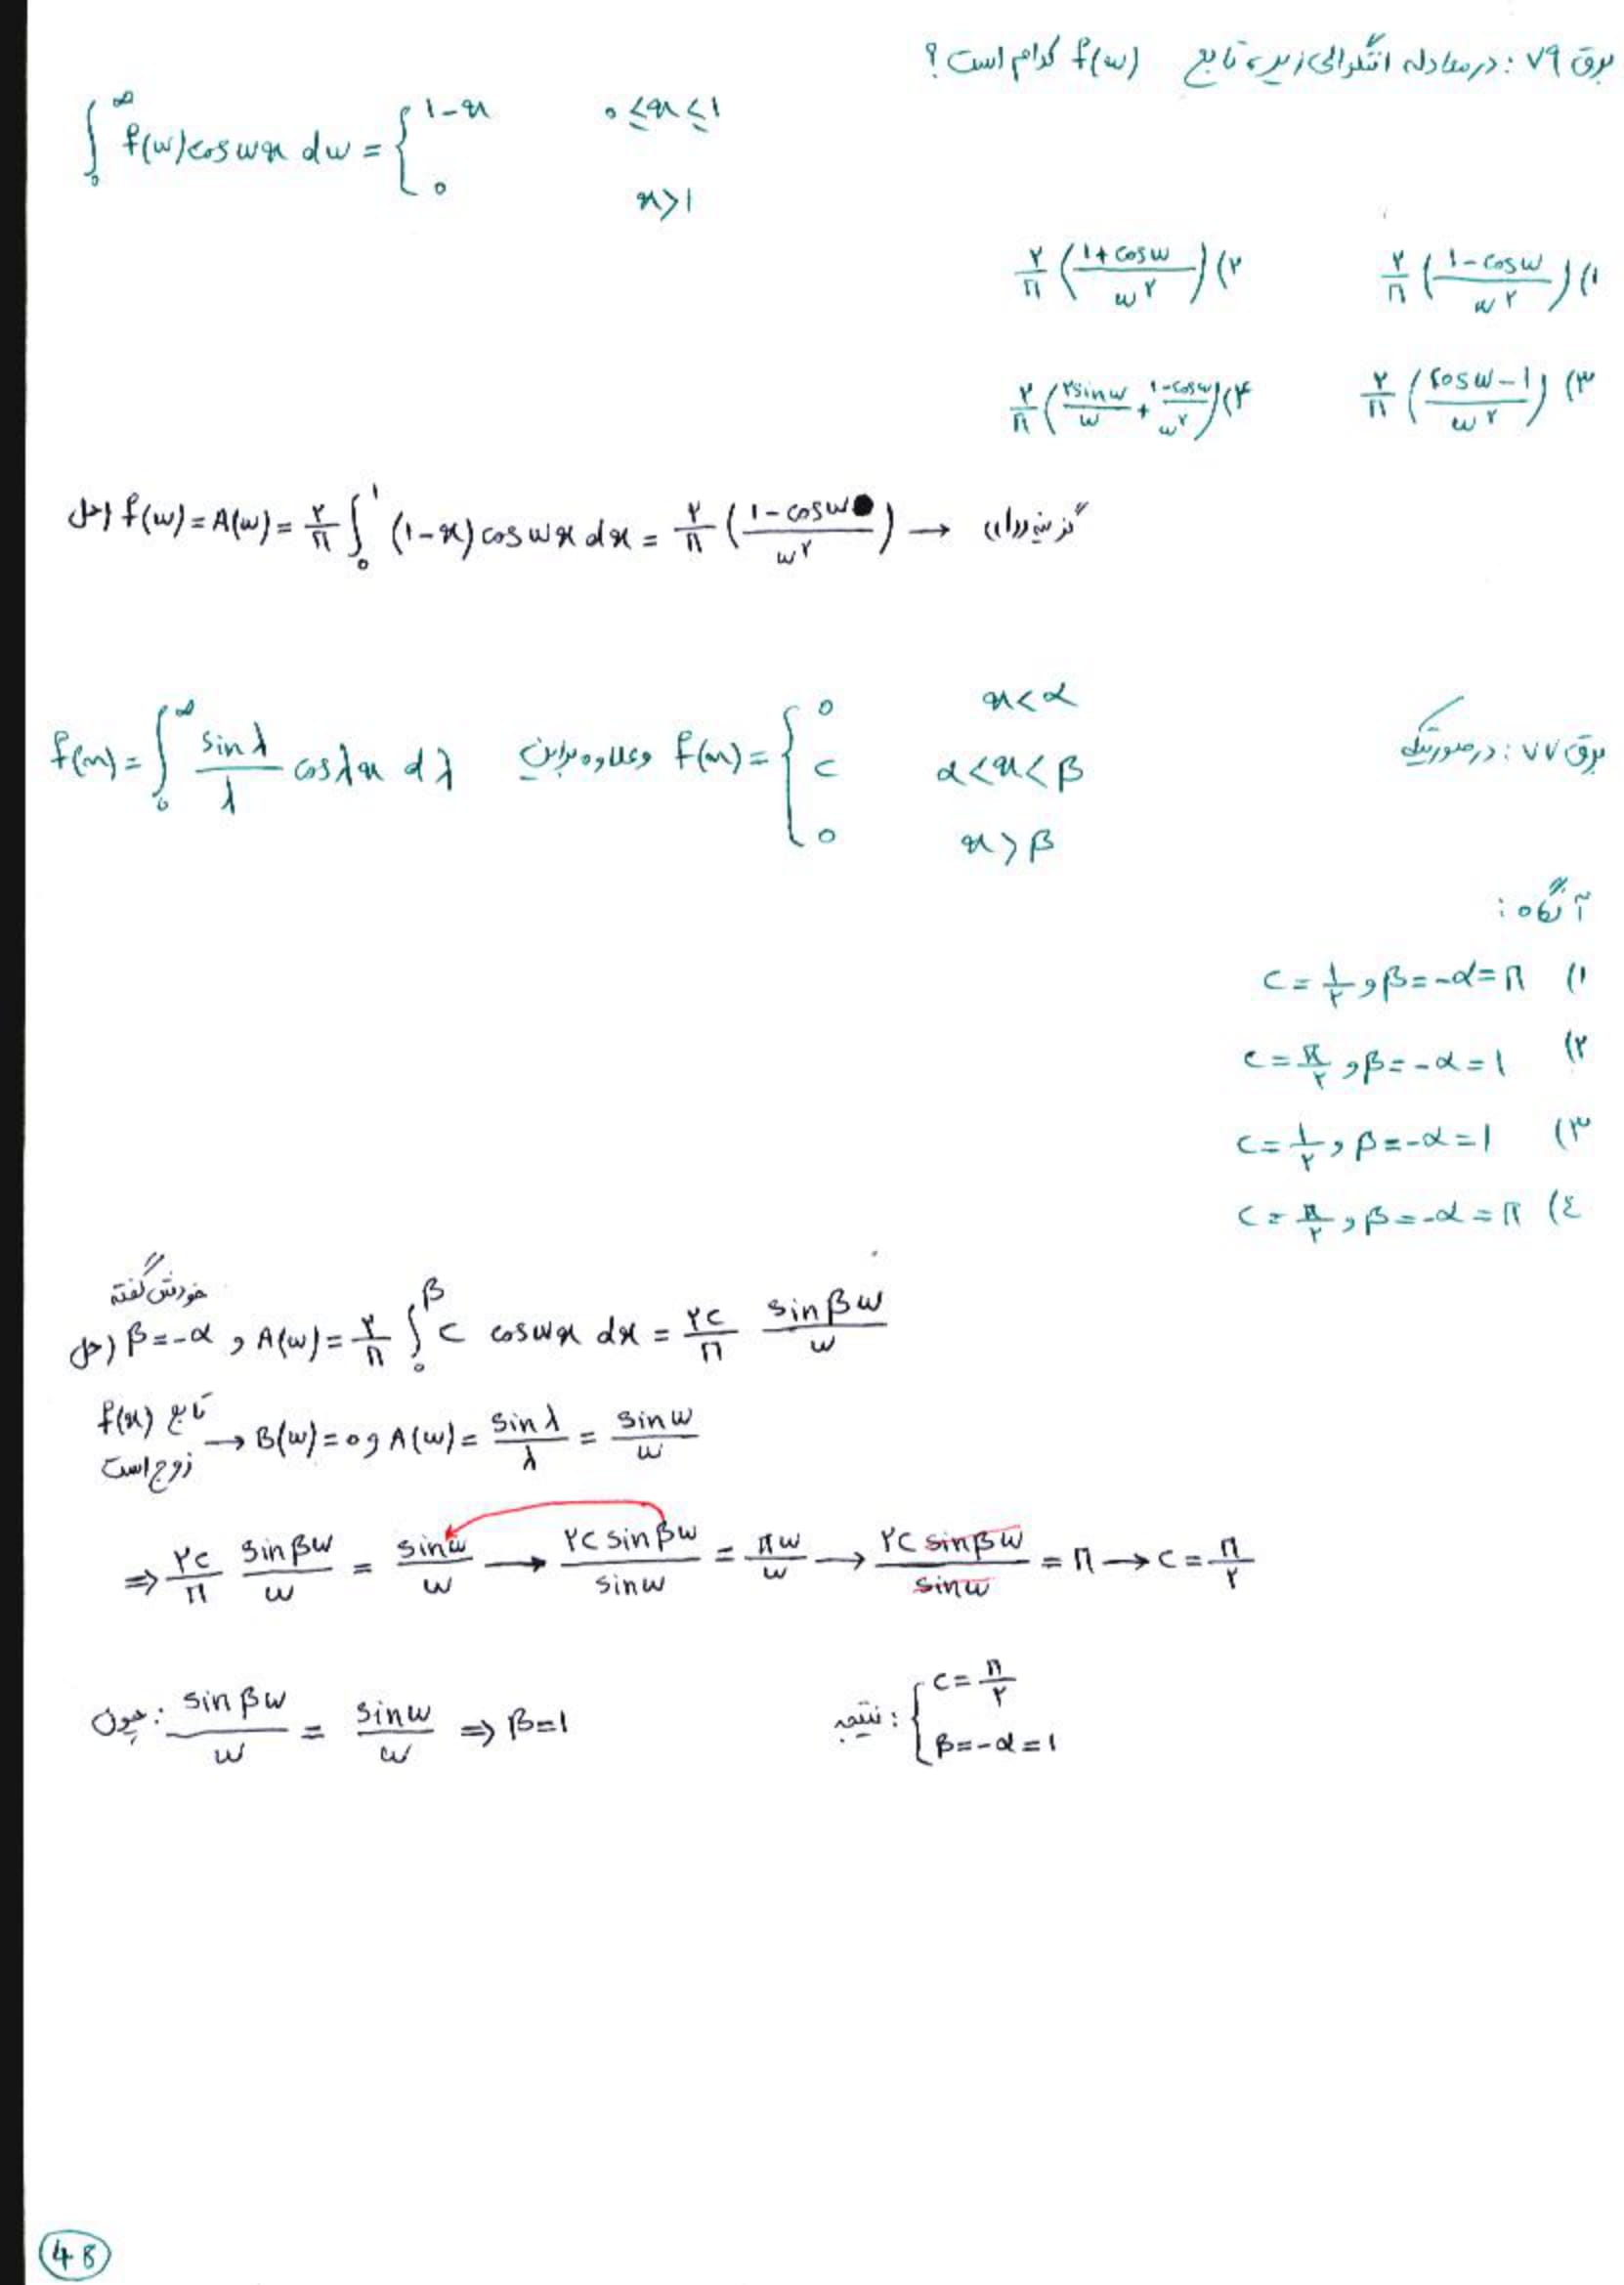 برق ۷۹ : در معادله انتگرالی زیر، تابع f(w) کدام است ؟
∫₀^∞ f(w) cos wx dw = { 1-x   0≤x≤1
0   x>1
۱) ۲/π (1-cosw / w^۲)   ۲) ۲/π (1+cosw / w^۲)
۳) ۲/π (cosw-1 / w^۲)   ۴) ۲/π (۲sinw / w + 1-cosw / w^۲)
حل) f(w) = A(w) = ۲/π ∫₀^1 (1-x) cos wx dx = ۲/π (1-cosw / w^۲) → گزینه (۱)
برق ۷۷ : در صورتیکه f(x) = ∫₀^∞ sinλ / λ cosλx dλ وعلاوه براین f(x) = { 0   x<α
c   α<x<β
0   x>β
آنگاه :
۱) c = 1/۲ و β = -α = π
۲) c = π/۲ و β = -α = 1
۳) c = 1/۲ و β = -α = 1
٤) c = π/۲ و β = -α = π
خودش گفته
حل) β = -α و A(w) = ۲/π ∫₀^β c cos wx dx = ۲c/π sinβw / w
تابع f(x) زوج است → B(w) = 0 و A(w) = sinλ / λ = sinw / w
⇒ ۲c/π sinβw / w = sinw / w → ۲c sinβw / sinw = πw / w → ۲c sinβw / sinw = π → c = π/۲
چون : sinβw / w = sinw / w ⇒ β=1   نتیجه : { c = π/۲
β = -α = 1
48